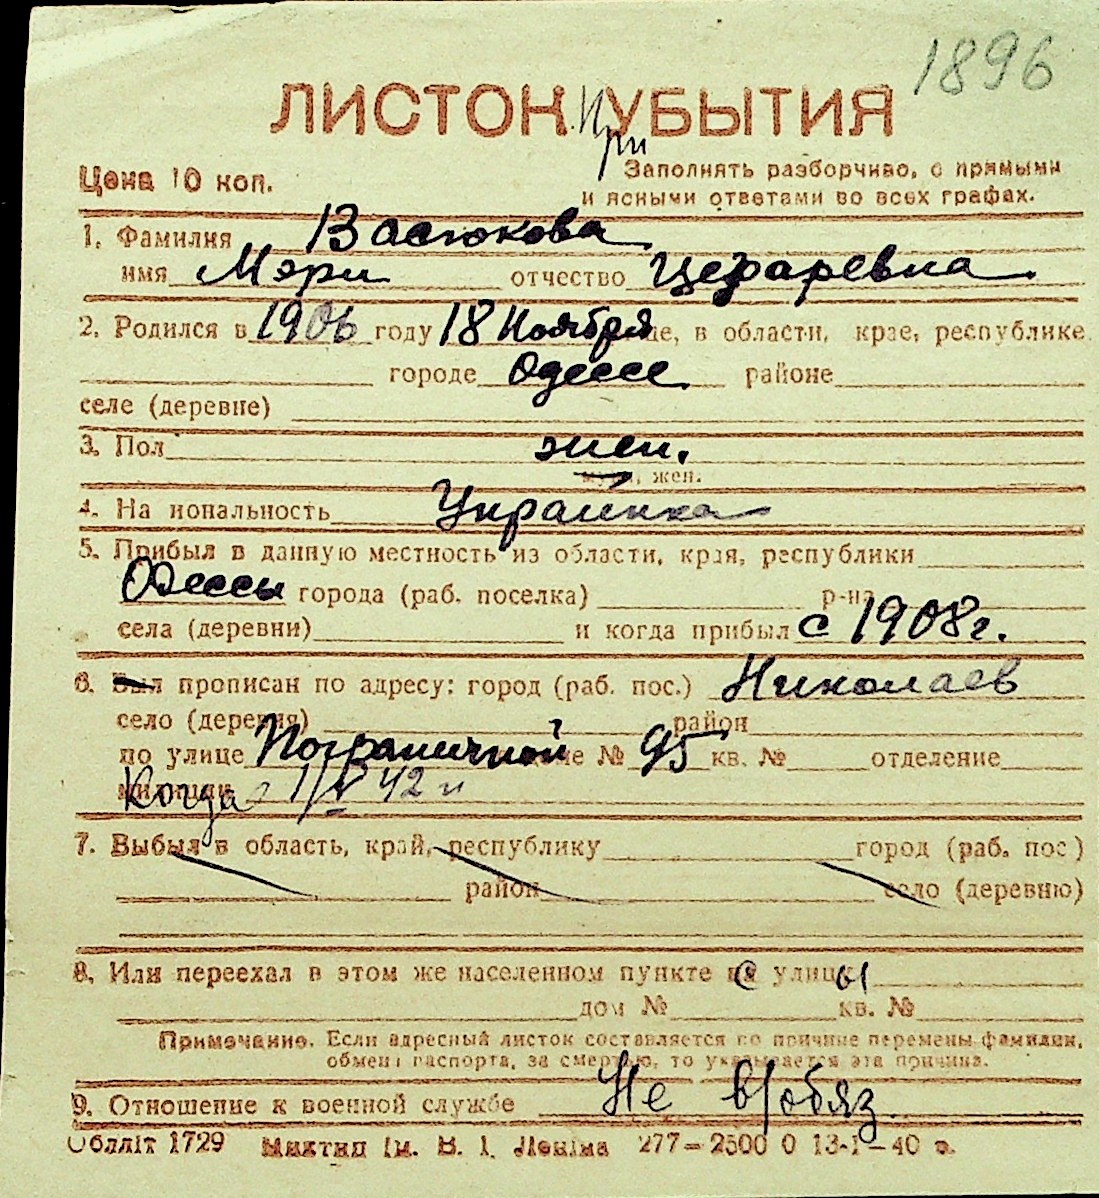 1896
ЛИСТОК При УБЫТИЯ
Цена 10 коп.
Заполнять разборчиво, с прямыми
и ясными ответами во всех графах.
1. Фамилия Васюкова
имя Мэри отчество Цезаревна
2. Родился в 1906 году 18 Ноября це, в области, крае, республике
городе Одессе районе
селе (деревне)
3. Пол жен.
муж, жен.
4. На иональность Украинка
5. Прибыл в данную местность из области, края, республики
Одессы города (раб. поселка) р-на
села (деревни) и когда прибыл с 1908г.
6. Был прописан по адресу: город (раб. пос.) Николаев
село (деревня) район
по улице Пограничной доме № 95 кв. № отделение
милиции Когда 1/V 42
7. Выбыл в область, край, республику город (раб. пос)
район село (деревню)
8. Или переехал в этом же населенном пункте с улицы
дом № кв. №
Примечание. Если адресный листок составляется по причине перемены фамилии,
обмена паспорта, за смертью, то указывается эта причина.
9. Отношение к военной службе Не в/обяз.
Обллiт 1729 Миктип Iм. В. I. Ленiна 277—2500 0 13-1-40 р.